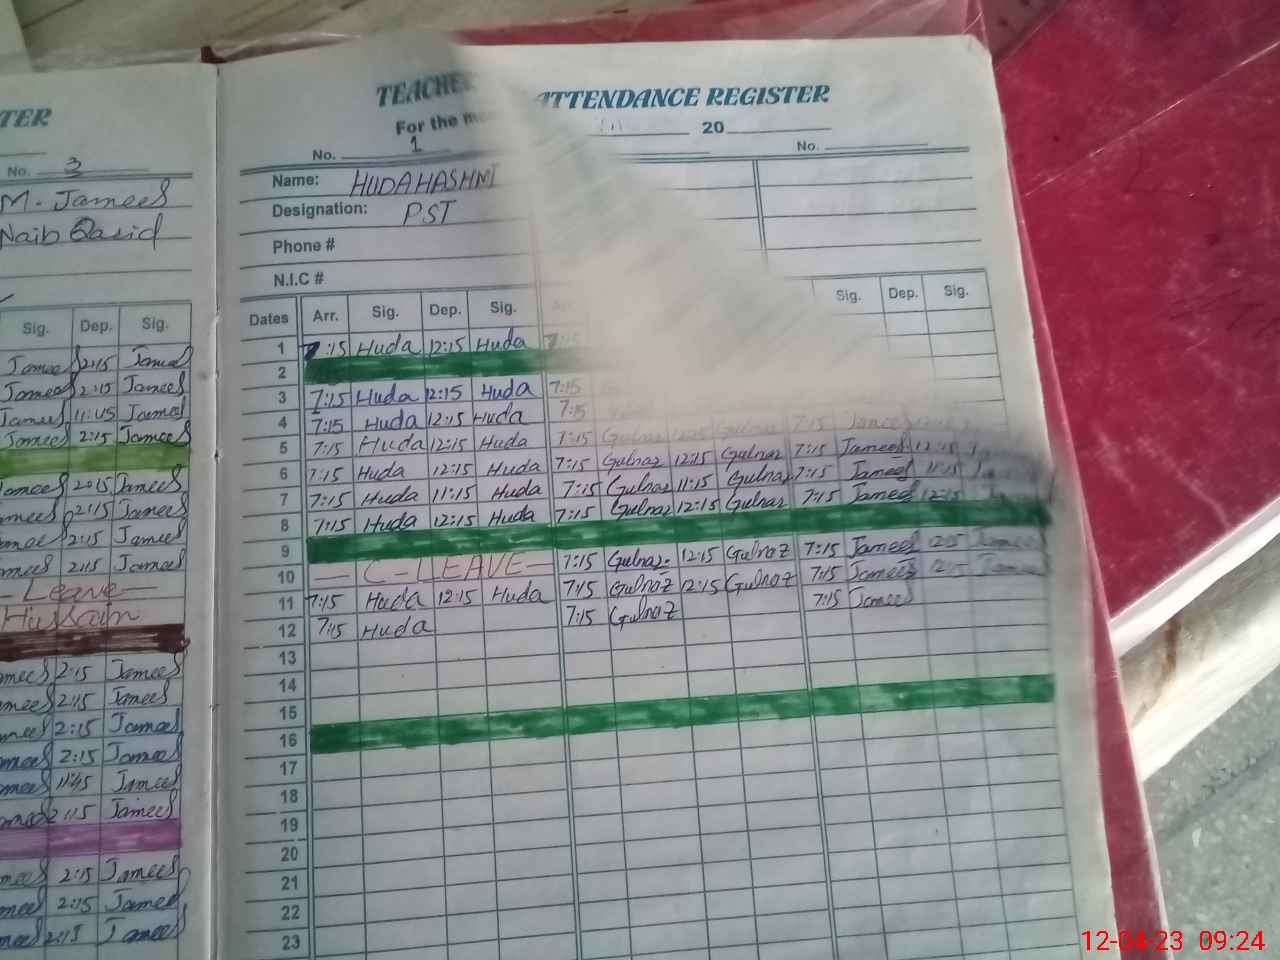 TER
No. 3
M. Jameel
Naib Qasid
Sig. Dep. Sig.
Jameel 2:15 Jameel
Jameel 2:15 Jameel
Jameel 11:45 Jameel
Jameel 2:15 Jameel
Jameel 2:15 Jameel
Jameel 2:15 Jameel
2:15 Jameel
2:15 Jameel
- Leave -
Hussain
2:15 Jameel
2:15 Jameel
2:15 Jameel
2:15 Jameel
11:45 Jameel
2:15 Jameel
2:15 Jameel
2:15 Jameel
2:15 Jameel
TEACHE ATTENDANCE REGISTER
For the 20
No. 1 No.
Name: HUDA HASHMI
Designation: PST
Phone #
N.I.C #
Dates Arr. Sig. Dep. Sig. Sig. Dep. Sig.
1 7:15 Huda 12:15 Huda 7:15
2
3 7:15 Huda 12:15 Huda 7:15
4 7:15 Huda 12:15 Huda 7:15
5 7:15 Huda 12:15 Huda 7:15 Gulnaz 12:15 Gulnaz 7:15 Jameel
6 7:15 Huda 12:15 Huda 7:15 Gulnaz 12:15 Gulnaz 7:15 Jameel 12:15
7 7:15 Huda 11:15 Huda 7:15 Gulnaz 11:15 Gulnaz 7:15 Jameel 11:15
8 7:15 Huda 12:15 Huda 7:15 Gulnaz 12:15 Gulnaz 7:15 Jameel 12:15
9
10 — C-LEAVE — 7:15 Gulnaz 12:15 Gulnaz 7:15 Jameel 12:15 Jameel
11 7:15 Huda 12:15 Huda 7:15 Gulnaz 12:15 Gulnaz 7:15 Jameel 12:15 Jameel
12 7:15 Huda 7:15 Gulnaz 7:15 Jameel
13
14
15
16
17
18
19
20
21
22
23
12-04-23 09:24